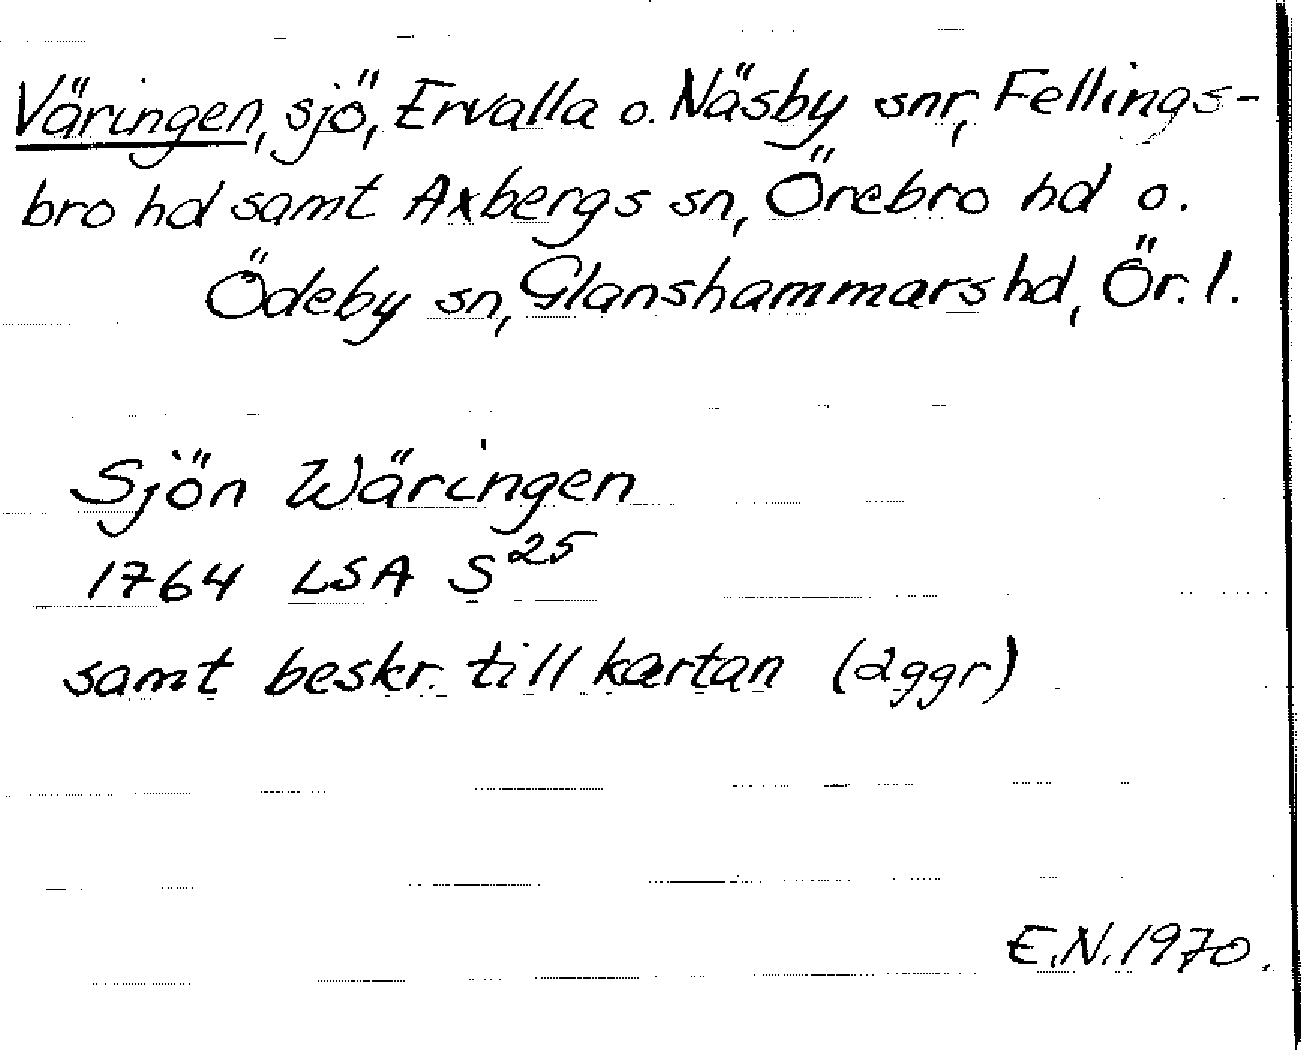 Väringen, sjö, Ervalla o. Näsby snr, Fellings-
bro hd samt Axbergs sn, Örebro hd o.
Ödeby sn, Glanshammars hd, Ör. l.
Sjön Wäringen
1764 LSA S 25
samt beskr. till kartan (2ggr)
E.N. 1970.